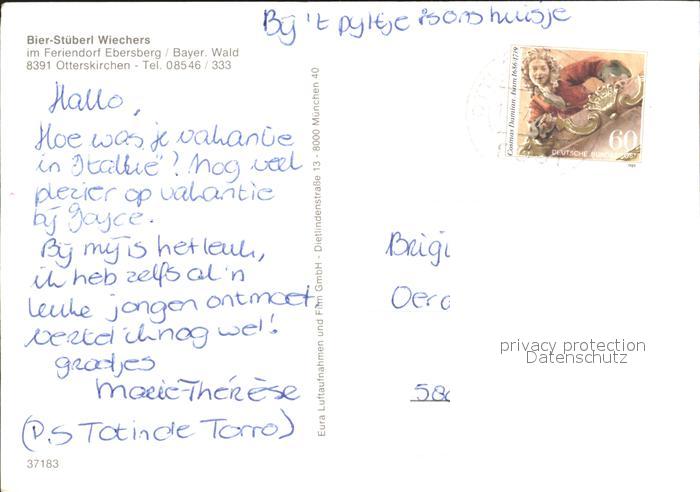 By 't pyltje is ons huisje
Bier-Stüberl Wiechers
im Feriendorf Ebersberg / Bayer. Wald
8391 Otterskirchen - Tel. 08546 / 333
Hallo,
Hoe was je vakantie
in "Italië"? Nog veel
plezier op vakantie
bij Joyce.
Bij mij is het leuk,
ik heb zelfs al 'n
leuke jongen ontmoet
vertel ik nog wel!
groetjes
Marie-Thérèse
(P.S Tot in de Torro)
37183
Eura Luftaufnahmen und Film GmbH - Dietlindenstraße 13 - 8000 München 40
Cosmas Damian Asam 1686-1739
60
DEUTSCHE BUNDESPOST
1989
Brigi
Oer
58
privacy protection
Datenschutz